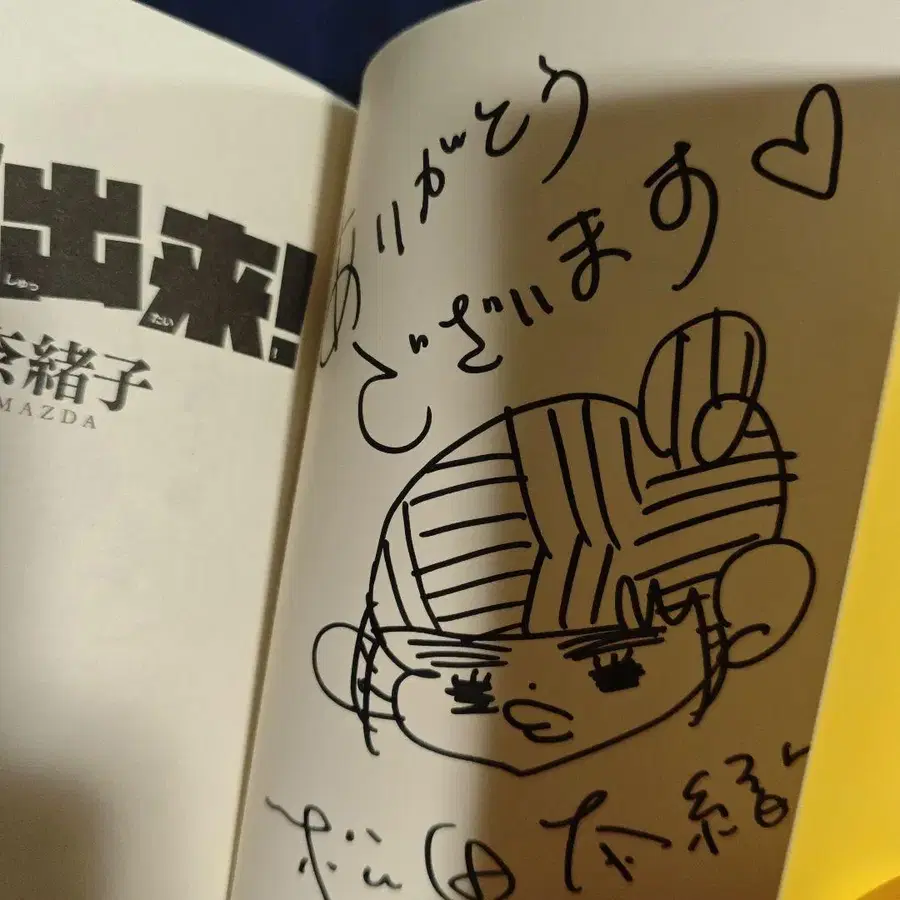 出来!
しゅっ たい
奈緒子
MAZDA
ありがとう
ございます♡
松田奈緒